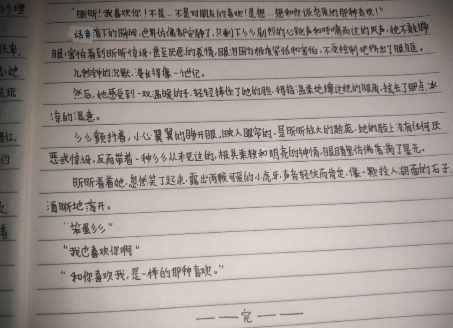 "昕昕!我喜欢你!不是,不是对朋友的喜欢!是想,想和你谈恋爱的那种喜欢!"
话音落下的瞬间,世界仿佛都安静了,只剩下彡彡剧烈的心跳声和呼啸而过的风声,她不敢睁
眼,害怕看到昕昕惊愕,甚至厌恶的表情,眼泪因为极度紧张和害怕,不受控制地挤出了眼眶。
几秒钟的沉默,漫长得像一个世纪。
然后,她感受到一双温暖的手,轻轻捧住了她的脸,指腹温柔地擦过她的眼角,拭去了那点冰
凉的湿意。
彡彡颤抖着,小心翼翼的睁开眼,映入眼帘的,是昕昕放大的脸庞,她的脸上没有任何厌
恶或惊愕,反而带着一种彡彡从未见过的,极其柔软和明亮的神情,眼睛里仿佛落满了星光。
昕昕看着她,忽然笑了起来,露出两颗可爱的小虎牙,声音轻快而肯定,像一颗投入湖面的石子,
清晰地荡开。
"笨蛋彡彡"
"我也喜欢你啊"
"和你喜欢我,是一样的那种喜欢。"
——完——